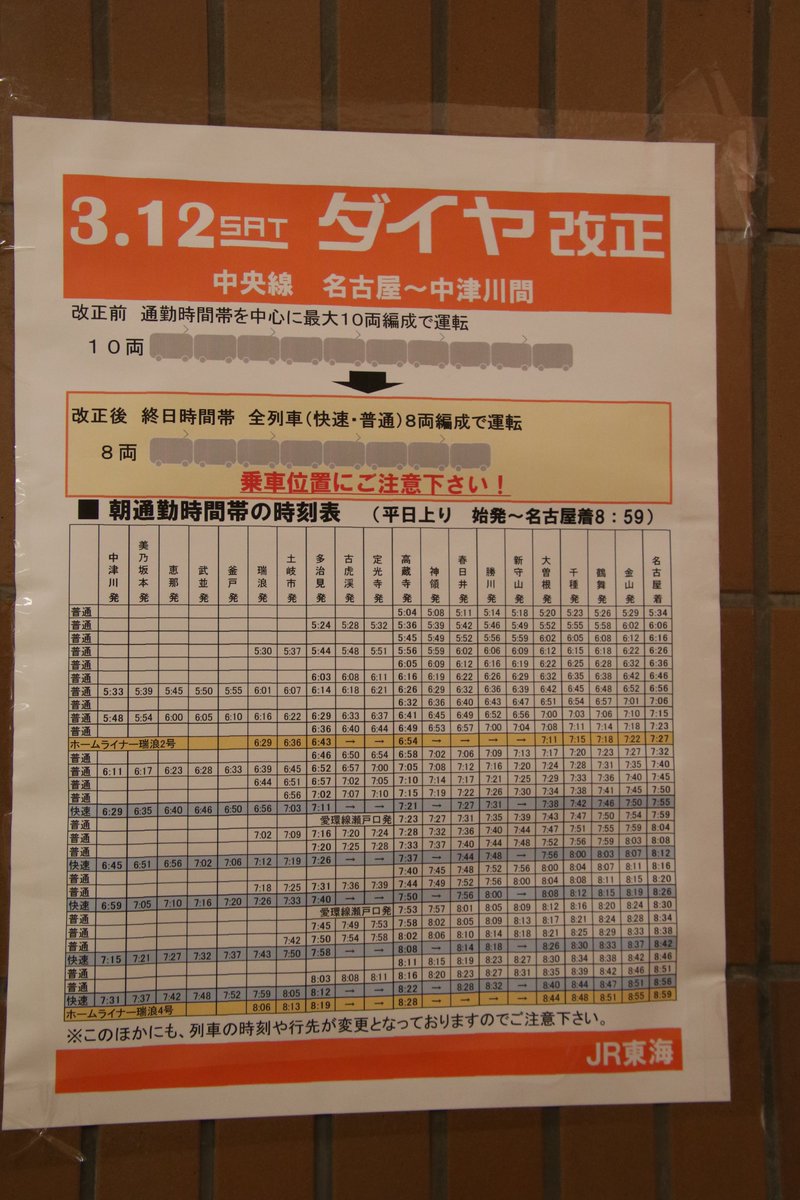 3.12SAT ダイヤ改正
中央線 名古屋～中津川間
改正前 通勤時間帯を中心に最大10両編成で運転
10両
改正後 終日時間帯 全列車(快速・普通)8両編成で運転
8両
乗車位置にご注意下さい!
■ 朝通勤時間帯の時刻表 (平日上り 始発～名古屋着8:59)
中津川発 美乃坂本発 恵那発 武並発 釜戸発 瑞浪発 土岐市発 多治見発 古虎渓発 定光寺発 高蔵寺発 神領発 春日井発 勝川発 新守山発 大曽根発 千種発 鶴舞発 金山発 名古屋着
普通 5:04 5:08 5:11 5:14 5:18 5:20 5:23 5:26 5:29 5:34
普通 5:24 5:28 5:32 5:36 5:39 5:42 5:46 5:49 5:52 5:55 5:58 6:02 6:06
普通 5:45 5:49 5:52 5:56 5:59 6:02 6:05 6:08 6:12 6:16
普通 5:30 5:37 5:44 5:48 5:51 5:56 5:59 6:02 6:06 6:09 6:12 6:15 6:18 6:22 6:26
普通 6:05 6:09 6:12 6:16 6:19 6:22 6:25 6:28 6:32 6:36
普通 6:03 6:08 6:11 6:16 6:19 6:22 6:26 6:29 6:32 6:35 6:38 6:42 6:46
普通 5:33 5:39 5:45 5:50 5:55 6:01 6:07 6:14 6:18 6:21 6:26 6:29 6:32 6:36 6:39 6:42 6:45 6:48 6:52 6:56
普通 6:32 6:36 6:40 6:43 6:47 6:51 6:54 6:57 7:01 7:06
普通 5:48 5:54 6:00 6:05 6:10 6:16 6:22 6:29 6:33 6:37 6:41 6:45 6:49 6:52 6:56 7:00 7:03 7:06 7:10 7:15
普通 6:36 6:40 6:44 6:49 6:53 6:57 7:00 7:04 7:08 7:11 7:14 7:18 7:23
ホームライナー瑞浪2号 6:29 6:36 6:43 → → 6:54 → → → → 7:11 7:15 7:18 7:22 7:27
普通 6:46 6:50 6:54 6:58 7:02 7:06 7:09 7:13 7:17 7:20 7:23 7:27 7:32
普通 6:11 6:17 6:23 6:28 6:33 6:39 6:45 6:52 6:57 7:00 7:05 7:08 7:12 7:16 7:20 7:24 7:28 7:31 7:35 7:40
普通 6:44 6:51 6:57 7:02 7:05 7:10 7:14 7:17 7:21 7:25 7:29 7:33 7:36 7:40 7:45
普通 6:56 7:02 7:07 7:10 7:15 7:19 7:22 7:26 7:30 7:34 7:38 7:41 7:45 7:50
快速 6:29 6:35 6:40 6:46 6:50 6:56 7:03 7:11 → → 7:21 → 7:27 7:31 → 7:38 7:42 7:46 7:50 7:55
普通 愛環線瀬戸口発 7:23 7:27 7:31 7:35 7:39 7:43 7:47 7:50 7:54 7:59
普通 7:02 7:09 7:16 7:20 7:24 7:28 7:32 7:36 7:40 7:44 7:47 7:51 7:55 7:59 8:04
普通 7:20 7:25 7:28 7:33 7:37 7:40 7:44 7:48 7:52 7:56 7:59 8:03 8:08
快速 6:45 6:51 6:56 7:02 7:06 7:12 7:19 7:26 → → 7:37 → 7:44 7:48 → 7:56 8:00 8:03 8:07 8:12
普通 7:40 7:45 7:48 7:52 7:56 8:00 8:04 8:07 8:11 8:16
普通 7:18 7:25 7:31 7:36 7:39 7:44 7:49 7:52 7:56 8:00 8:04 8:08 8:11 8:15 8:20
快速 6:59 7:05 7:10 7:16 7:20 7:26 7:33 7:40 → → 7:50 → 7:56 8:00 → 8:08 8:12 8:15 8:19 8:26
普通 愛環線瀬戸口発 7:53 7:57 8:01 8:05 8:09 8:12 8:16 8:20 8:24 8:30
普通 7:45 7:49 7:53 7:58 8:02 8:05 8:09 8:13 8:17 8:21 8:24 8:28 8:34
普通 7:42 7:50 7:54 7:58 8:02 8:06 8:10 8:14 8:18 8:21 8:25 8:29 8:33 8:38
快速 7:15 7:21 7:27 7:32 7:37 7:43 7:50 7:58 → → 8:08 → 8:14 8:18 → 8:26 8:30 8:33 8:37 8:42
普通 8:11 8:15 8:19 8:23 8:27 8:30 8:34 8:38 8:42 8:46
普通 8:03 8:08 8:11 8:16 8:20 8:23 8:27 8:31 8:35 8:39 8:42 8:46 8:51
快速 7:31 7:37 7:42 7:48 7:52 7:59 8:05 8:12 → → 8:22 → 8:28 8:32 → 8:40 8:44 8:47 8:51 8:56
ホームライナー瑞浪4号 8:06 8:13 8:19 → → 8:28 → → → → 8:44 8:48 8:51 8:55 8:59
※このほかにも、列車の時刻や行先が変更となっておりますのでご注意下さい。
JR東海